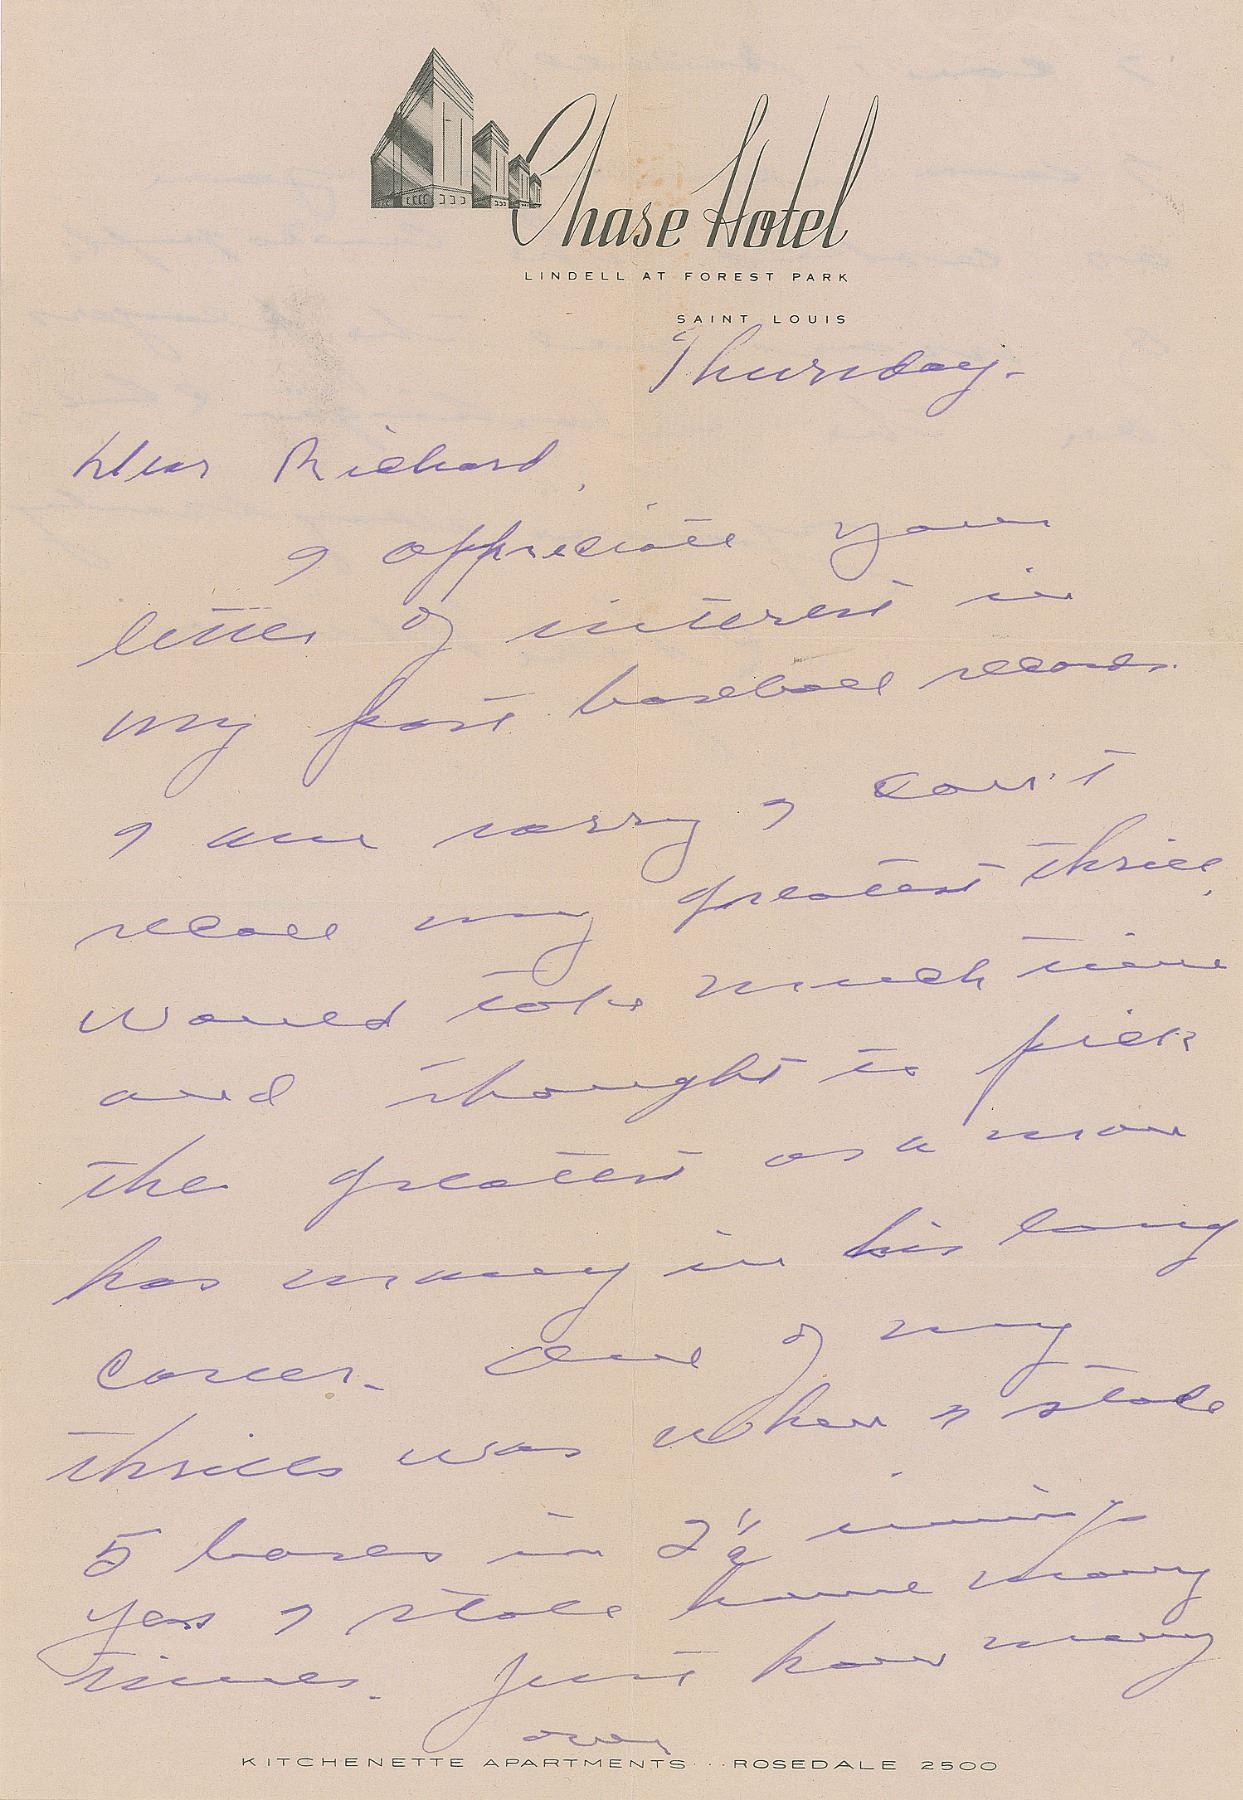 Chase Hotel
LINDELL AT FOREST PARK
SAINT LOUIS
Thursday.
Dear Richard,
I appreciate your
letter of interest in
my past baseball records.
I am sorry I can't
recall my greatest thrill,
would take much time
and thought to pick
the greatest as a man
has many in his long
career. One of my
thrills was when I stole
5 bases in 2 1/2 innings
yes I stole home many
times. Just how many
over
KITCHENETTE APARTMENTS ... ROSEDALE 2500